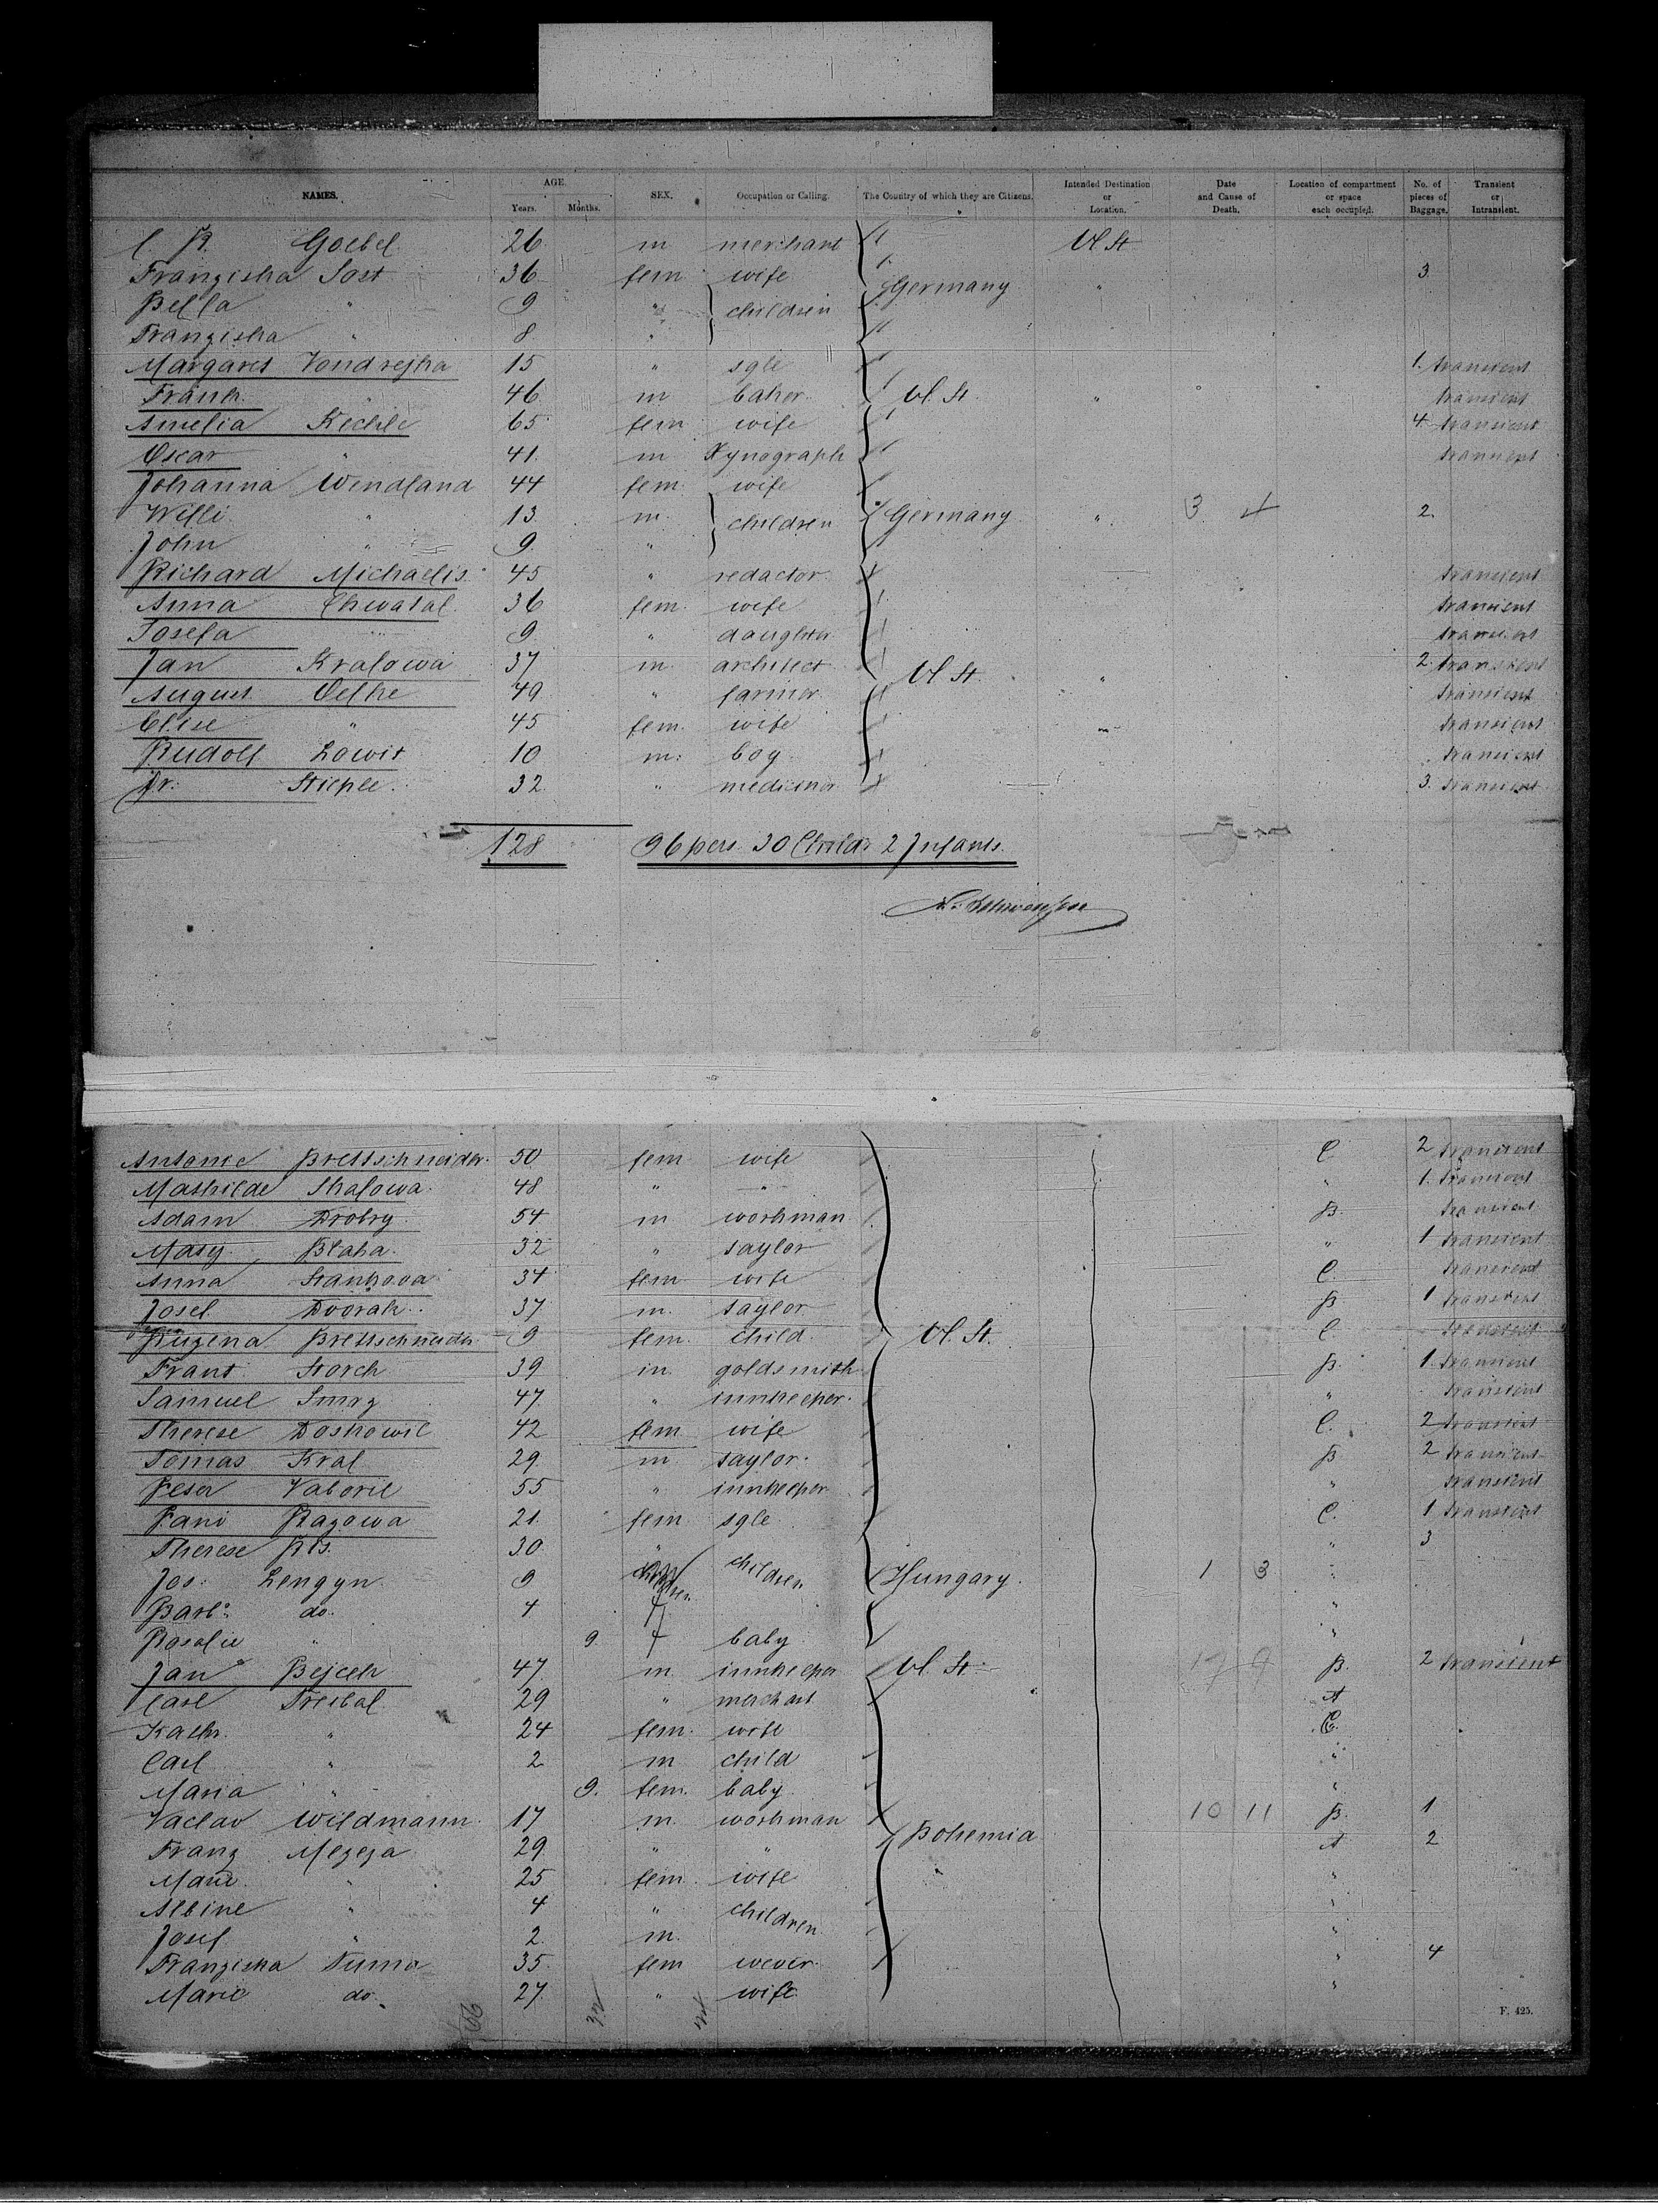 NAMES. AGE. Years. Months. SEX. Occupation or Calling. The Country of which they are Citizens. Intended Destination or Location. Date and Cause of Death. Location of compartment or space each occupied. No. of pieces of Baggage. Transient or Intransient.
C. R. Goebel 26 m merchant Ul. St
Franziska Jost 36 fem wife Germany " 3
Bella " 9 " children
Franziska " 8 "
Margaret Vondrejka 15 " sgle 1. transient
Frank " 46 m baker Ul. St. " transient
Amelia Kechle 65 fem wife 4 transient
Oscar " 41. m Xynograph transient
Johanna Wendland 44 fem. wife
Willi " 13 m. children Germany " 3 4 2.
John " 9. "
Richard Michaelis. 45 " redactor transient
Anna Chwatal. 36 fem. wife transient
Josefa " 9. " daughter transient
Jan Kralowa 37 m. architect Ul. St. " 2. transient
August Oelke 49 " farmer transient
Elise " 45 fem. wife " transient
Rudolf Lowit 10 m. boy transient
Fr. Stiehle. 32 " mediciner 3. transient
128 96 pers. 30 Childr. 2 Infants.
Antonie Brettschneider. 50 fem wife C. 2 transient
Mathilde Skalowa. 48 " " " 1. transient
Adam Drobry 54 m workman B. transient
Maty. Blaha. 32 " taylor " 1 transient
Anna Stankova 34 fem wife C. transient
Josef Dvorak. 37 m. taylor B 1 transient
Ruzena Brettschneider 9 fem. child. Ul. St. C. transient
Frant. Storch 39 m. goldsmith B. 1. transient
Samuel Smrz 47 " innkeeper. " transient
Therese Doskowil 42 fem wife C. 2 transient
Tomas Kral 29. m taylor. B 2 transient
Peter Vaboril 55 " innkeeper " transient
Fani Razowa 21. fem sgle C. 1 transient
Therese Kis. 30. " " 3
Jos. Lengyn. 9 children Hungary. 1 3 "
Barb. do. 4 f "
Rosalie " 9 f baby "
Jan Bejcek 47 m. innkeeper Ul. St. 17 9 B. 2 transient
Carl Treibal 29 " merchant A
Kath. " 24 fem. wife C.
Carl " 2 m child "
Maria " 9. fem. baby "
Vaclav Wildmann. 17 m. workman Bohemia 10 11 B. 1
Franz Mezeza 29 " " A 2
Marie " 25 fem. wife "
Albine " 4 " children "
Josef " 2. m. "
Franziska Tuma 35. fem wever. " 4
Marie do. 27 " wife. "
F. 425.